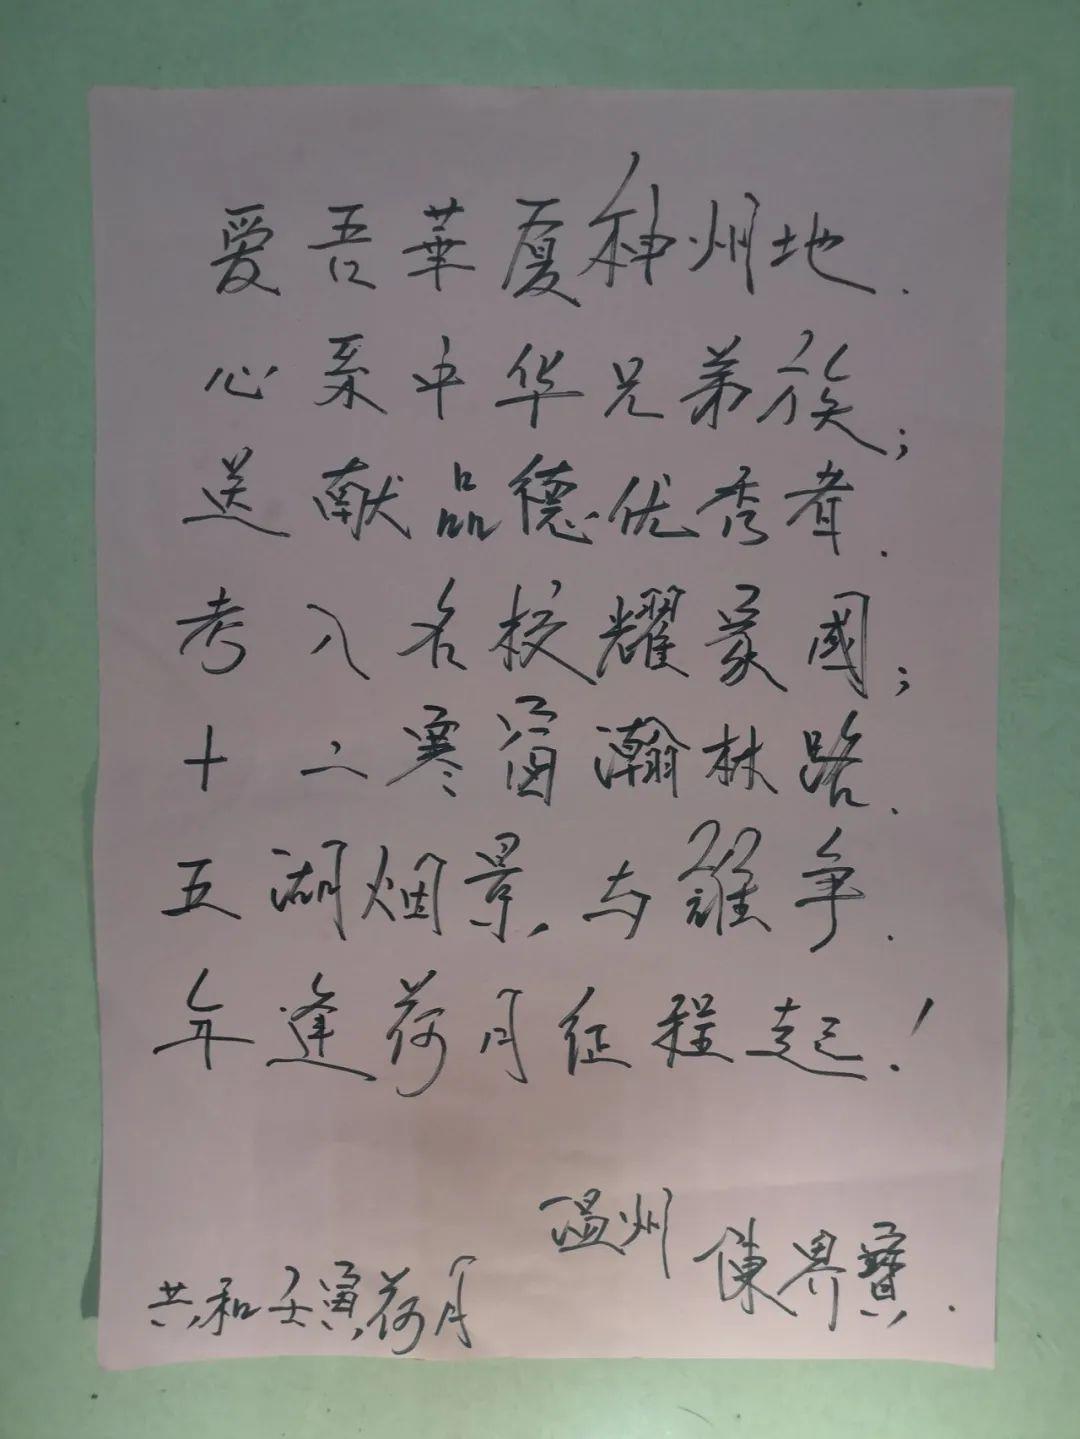 爱吾華夏神州地.
心系中华兄弟族;
送献品德优秀者.
考入名校耀家國;
十二寒窗瀚林路.
五湖烟景,与誰争.
年逢荷月征程起!
温州 陳昇寶.
共和壬寅,荷月